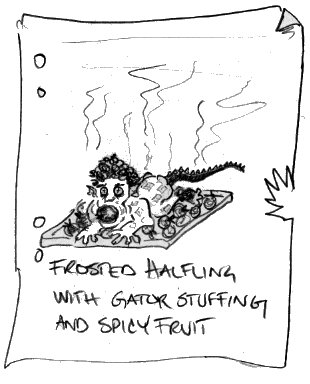 FROSTED HALFLING
WITH GATOR STUFFING
AND SPICY FRUIT